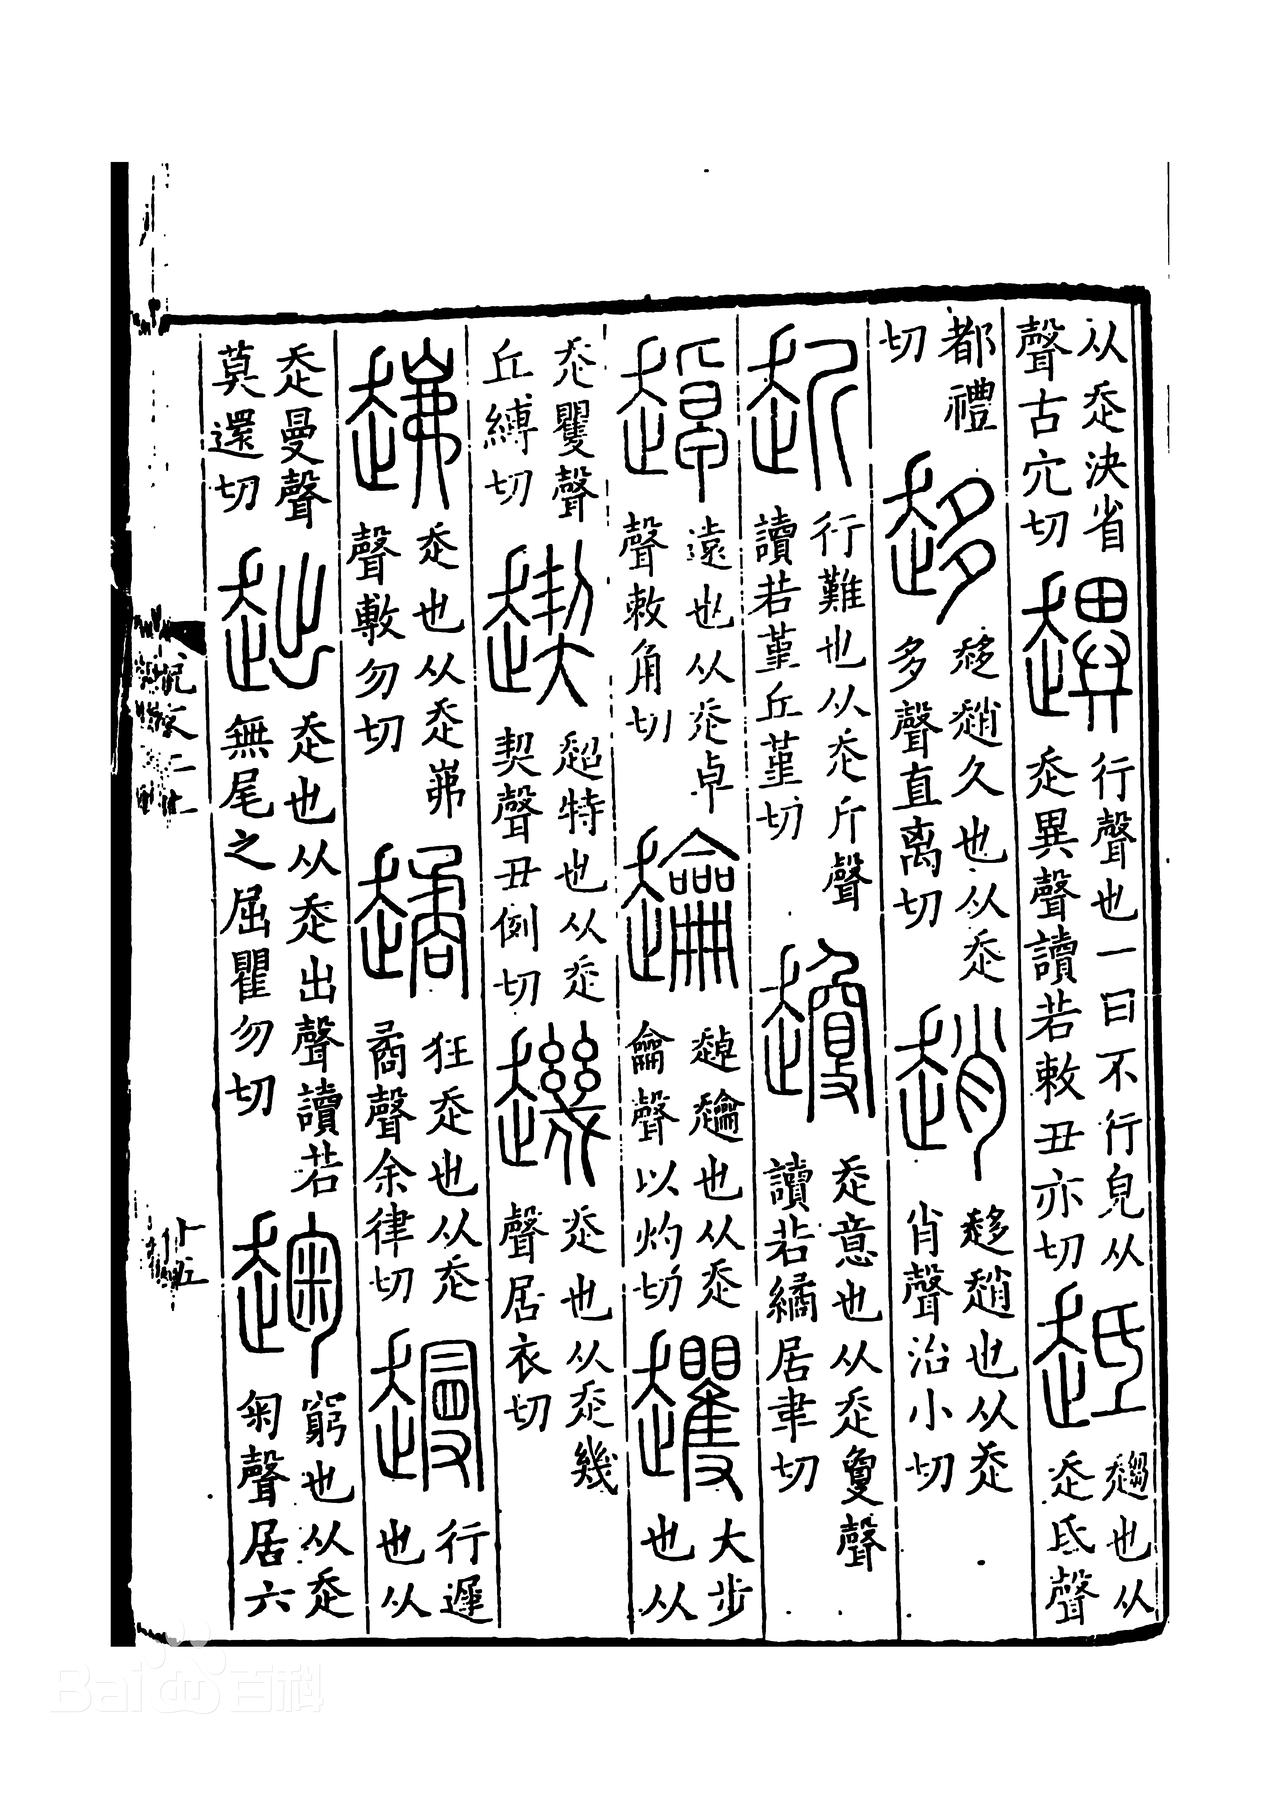 从走決省聲古穴切趩行聲也一曰不行皃从走異聲讀若敕丑亦切趆趨也从走氐聲
都禮切趍趍趙久也从走多聲直离切趙趍趙也从走肖聲治小切
赾行難也从走斤聲讀若堇丘堇切走意也从走夐聲讀若繘居聿切
趠遠也从走卓聲敕角切趠也从走龠聲以灼切大步也从
走矍聲丘縛切超特也从走契聲丑例切走也从走幾聲居衣切
走也从走岪聲敷勿切狂走也从走矞聲余律切行遲也从
走曼聲莫還切䞷走也从走出聲讀若無尾之屈瞿勿切窮也从走匊聲居六
說文二上
十五
Baidu百科